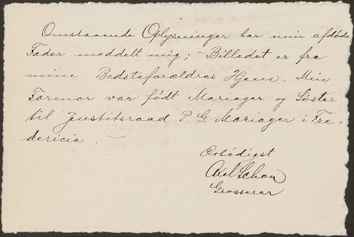 Omstaaende Oplysninger har min afdøde
Fader meddelt mig; – Billedet er fra
mine Bedsteforældres Hjem. Min
Formor var født Mariager og Søster
til Justitsraad P. G. Mariager i Fre-
dericia.
Ærbødigst
Axel Schou
Grosserer